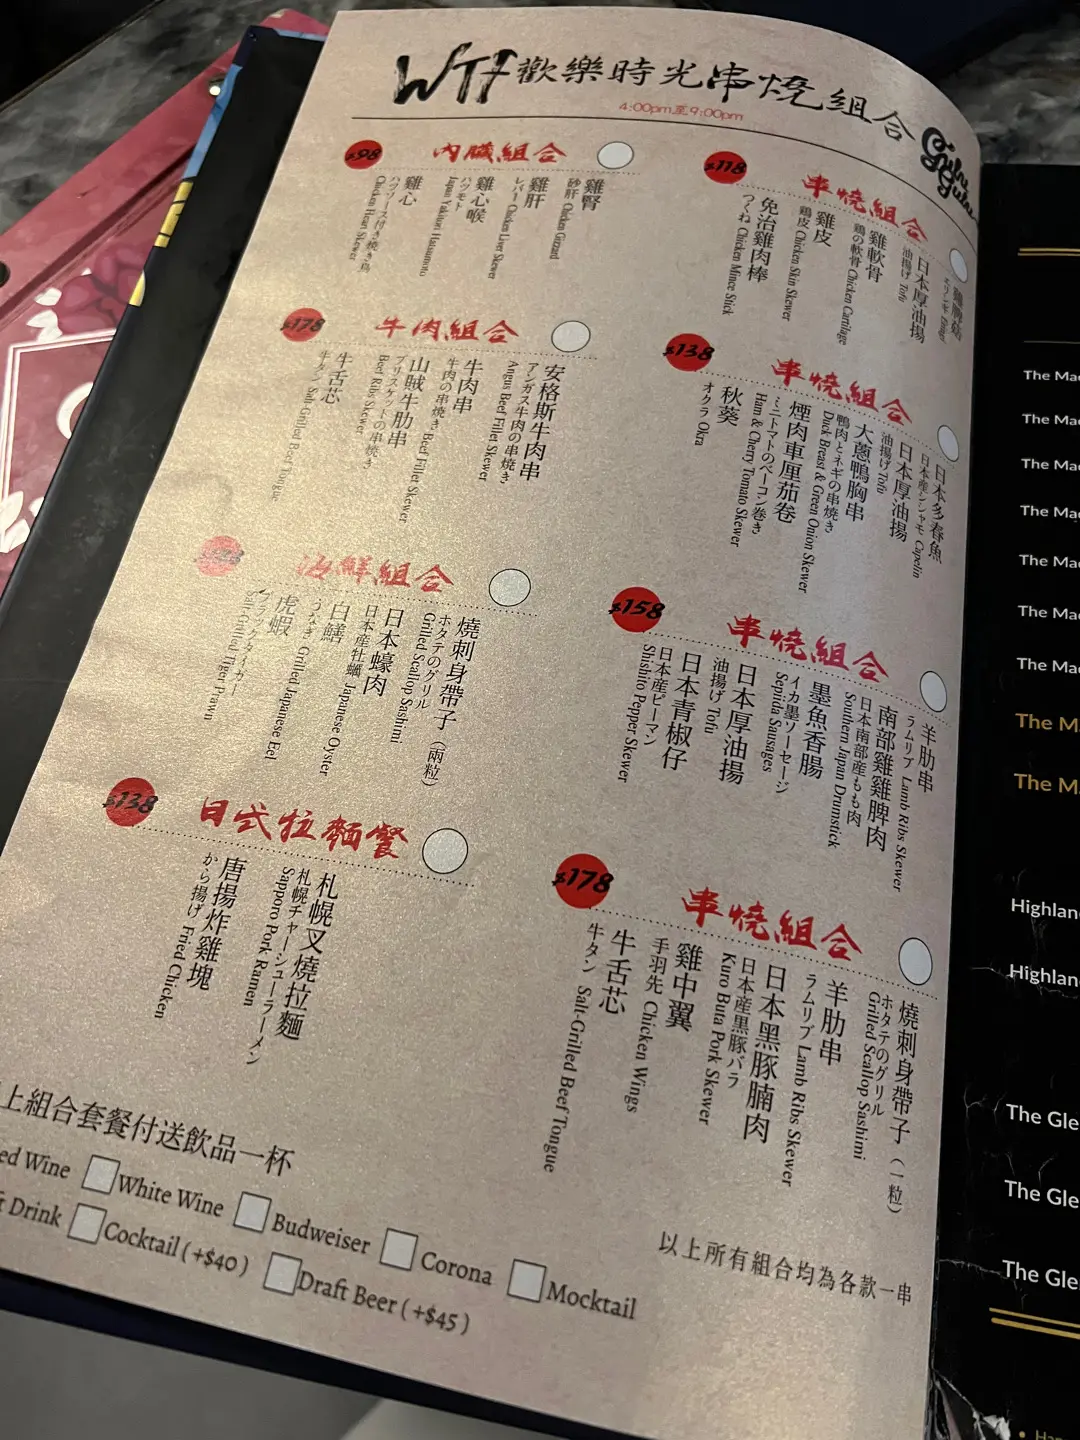 WTF歡樂時光串燒組合
4:00pm至9:00pm
$98
內臟組合
雞腎
砂肝 Chicken Gizzard
雞肝
レバー Chicken Liver Skewer
雞心喉
ハツモト
Japan Yakitori Hatsumoto
雞心
ハツソース付き焼き鳥
Chicken Heart Skewer
$178
牛肉組合
安格斯牛肉串
アンガス牛肉の串焼き
Angus Beef Fillet Skewer
牛肉串
牛肉の串焼き Beef Fillet Skewer
山賊牛肋串
ブリスケットの串焼き
Beef Ribs Skewer
牛舌芯
牛タン Salt-Grilled Beef Tongue
海鮮組合
燒刺身帶子（兩粒）
ホタテのグリル
Grilled Scallop Sashimi
日本蠔肉
日本産牡蠣 Japanese Oyster
白鱔
うなぎ Grilled Japanese Eel
虎蝦
ブラックタイガー
Salt-Grilled Tiger Prawn
$138
日式拉麵餐
札幌叉燒拉麵
札幌チャーシューラーメン
Sapporo Pork Ramen
唐揚炸雞塊
から揚げ Fried Chicken
$118
串燒組合
雞髀菇
エリンギ Elingi
日本厚油揚
油揚げ Tofu
雞軟骨
鶏の軟骨 Chicken Cartilage
雞皮
鶏皮 Chicken Skin Skewer
免治雞肉棒
つくね Chicken Mince Stick
$138
串燒組合
日本多春魚
日本産シシャモ Capelin
日本厚油揚
油揚げ Tofu
大蔥鴨胸串
鴨肉とネギの串焼き
Duck Breast & Green Onion Skewer
煙肉車厘茄卷
ミニトマトのベーコン巻き
Ham & Cherry Tomato Skewer
秋葵
オクラ Okra
$158
串燒組合
羊肋串
ラムリブ Lamb Ribs Skewer
南部雞雞脾肉
日本南部産もも肉
Southern Japan Drumstick
墨魚香腸
イカ墨ソーセージ
Sepiida Sausages
日本厚油揚
油揚げ Tofu
日本青椒仔
日本産ピーマン
Shishito Pepper Skewer
$178
串燒組合
燒刺身帶子（一粒）
ホタテのグリル
Grilled Scallop Sashimi
羊肋串
ラムリブ Lamb Ribs Skewer
日本黑豚腩肉
日本産黒豚バラ
Kuro Buta Pork Skewer
雞中翼
手羽先 Chicken Wings
牛舌芯
牛タン Salt-Grilled Beef Tongue
以上所有組合均為各款一串
上組合套餐付送飲品一杯
ed Wine
White Wine
Budweiser
Corona
Mocktail
Drink
Cocktail ( +$40 )
Draft Beer ( +$45 )
The Ma
The Ma
The Ma
The Ma
The Ma
The Ma
The Ma
The M
The M
Highlan
Highlan
The Gle
The Gle
The Gle